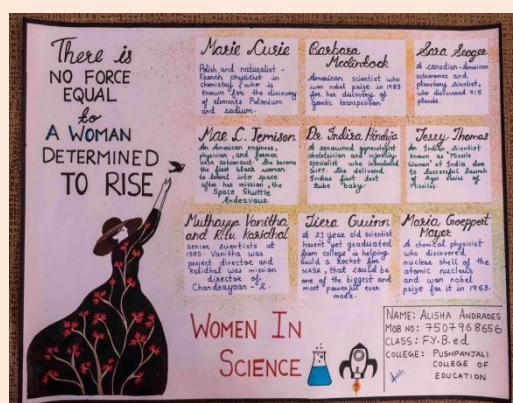 There is
NO FORCE
EQUAL
to
A WOMAN
DETERMINED
TO RISE
Marie Curie
Polish and naturalist -
French physicist in
chemistry, who is
known for the discovery
of elements Polonium
and radium.
Barbara
Mcclintock
American scientist who
won nobel prize in 1983
for her discovery of
genetic transposition.
Sara Seager
A canadian-American
astronomer and
planetary scientist,
who discovered 715
planets.
Mae C. Jemison
An American engineer,
physician, and former
NASA astronaut. She became
the first black woman
to travel into space
after her mission, the
Space Shuttle
Endeavour.
Dr Indira Hinduja
A renowned gynecologist
obstetrician and infertility
specialist who introduced
GIFT. She delivered
India's first test
tube baby.
Tessy Thomas
An Indian Scientist
known as "Missile
Woman" of India due
to Successful launch
of Agni Rules of
Missiles.
Muthayya Vanitha
and Ritu Karidhal
senior scientists at
ISRO. Vanitha was
project director and
Kalidhal was mission
director of
Chandrayaan - 2.
Tiera Guinn
A 21 year old scientist
hasn't yet graduated
from college is helping
build a rocket for
NASA, that could be
one of the biggest and
most powerful ever
made.
Maria Goeppert
Mayor
A chemical physicist
who discovered
nuclear shell of the
atomic nucleus
and won nobel
prize for it in 1963.
WOMEN IN
SCIENCE
NAME: ALISHA ANDRADES
MOB NO: 7507968656
CLASS: F.Y.B.ed
COLLEGE: PUSHPANJALI
COLLEGE OF
EDUCATION